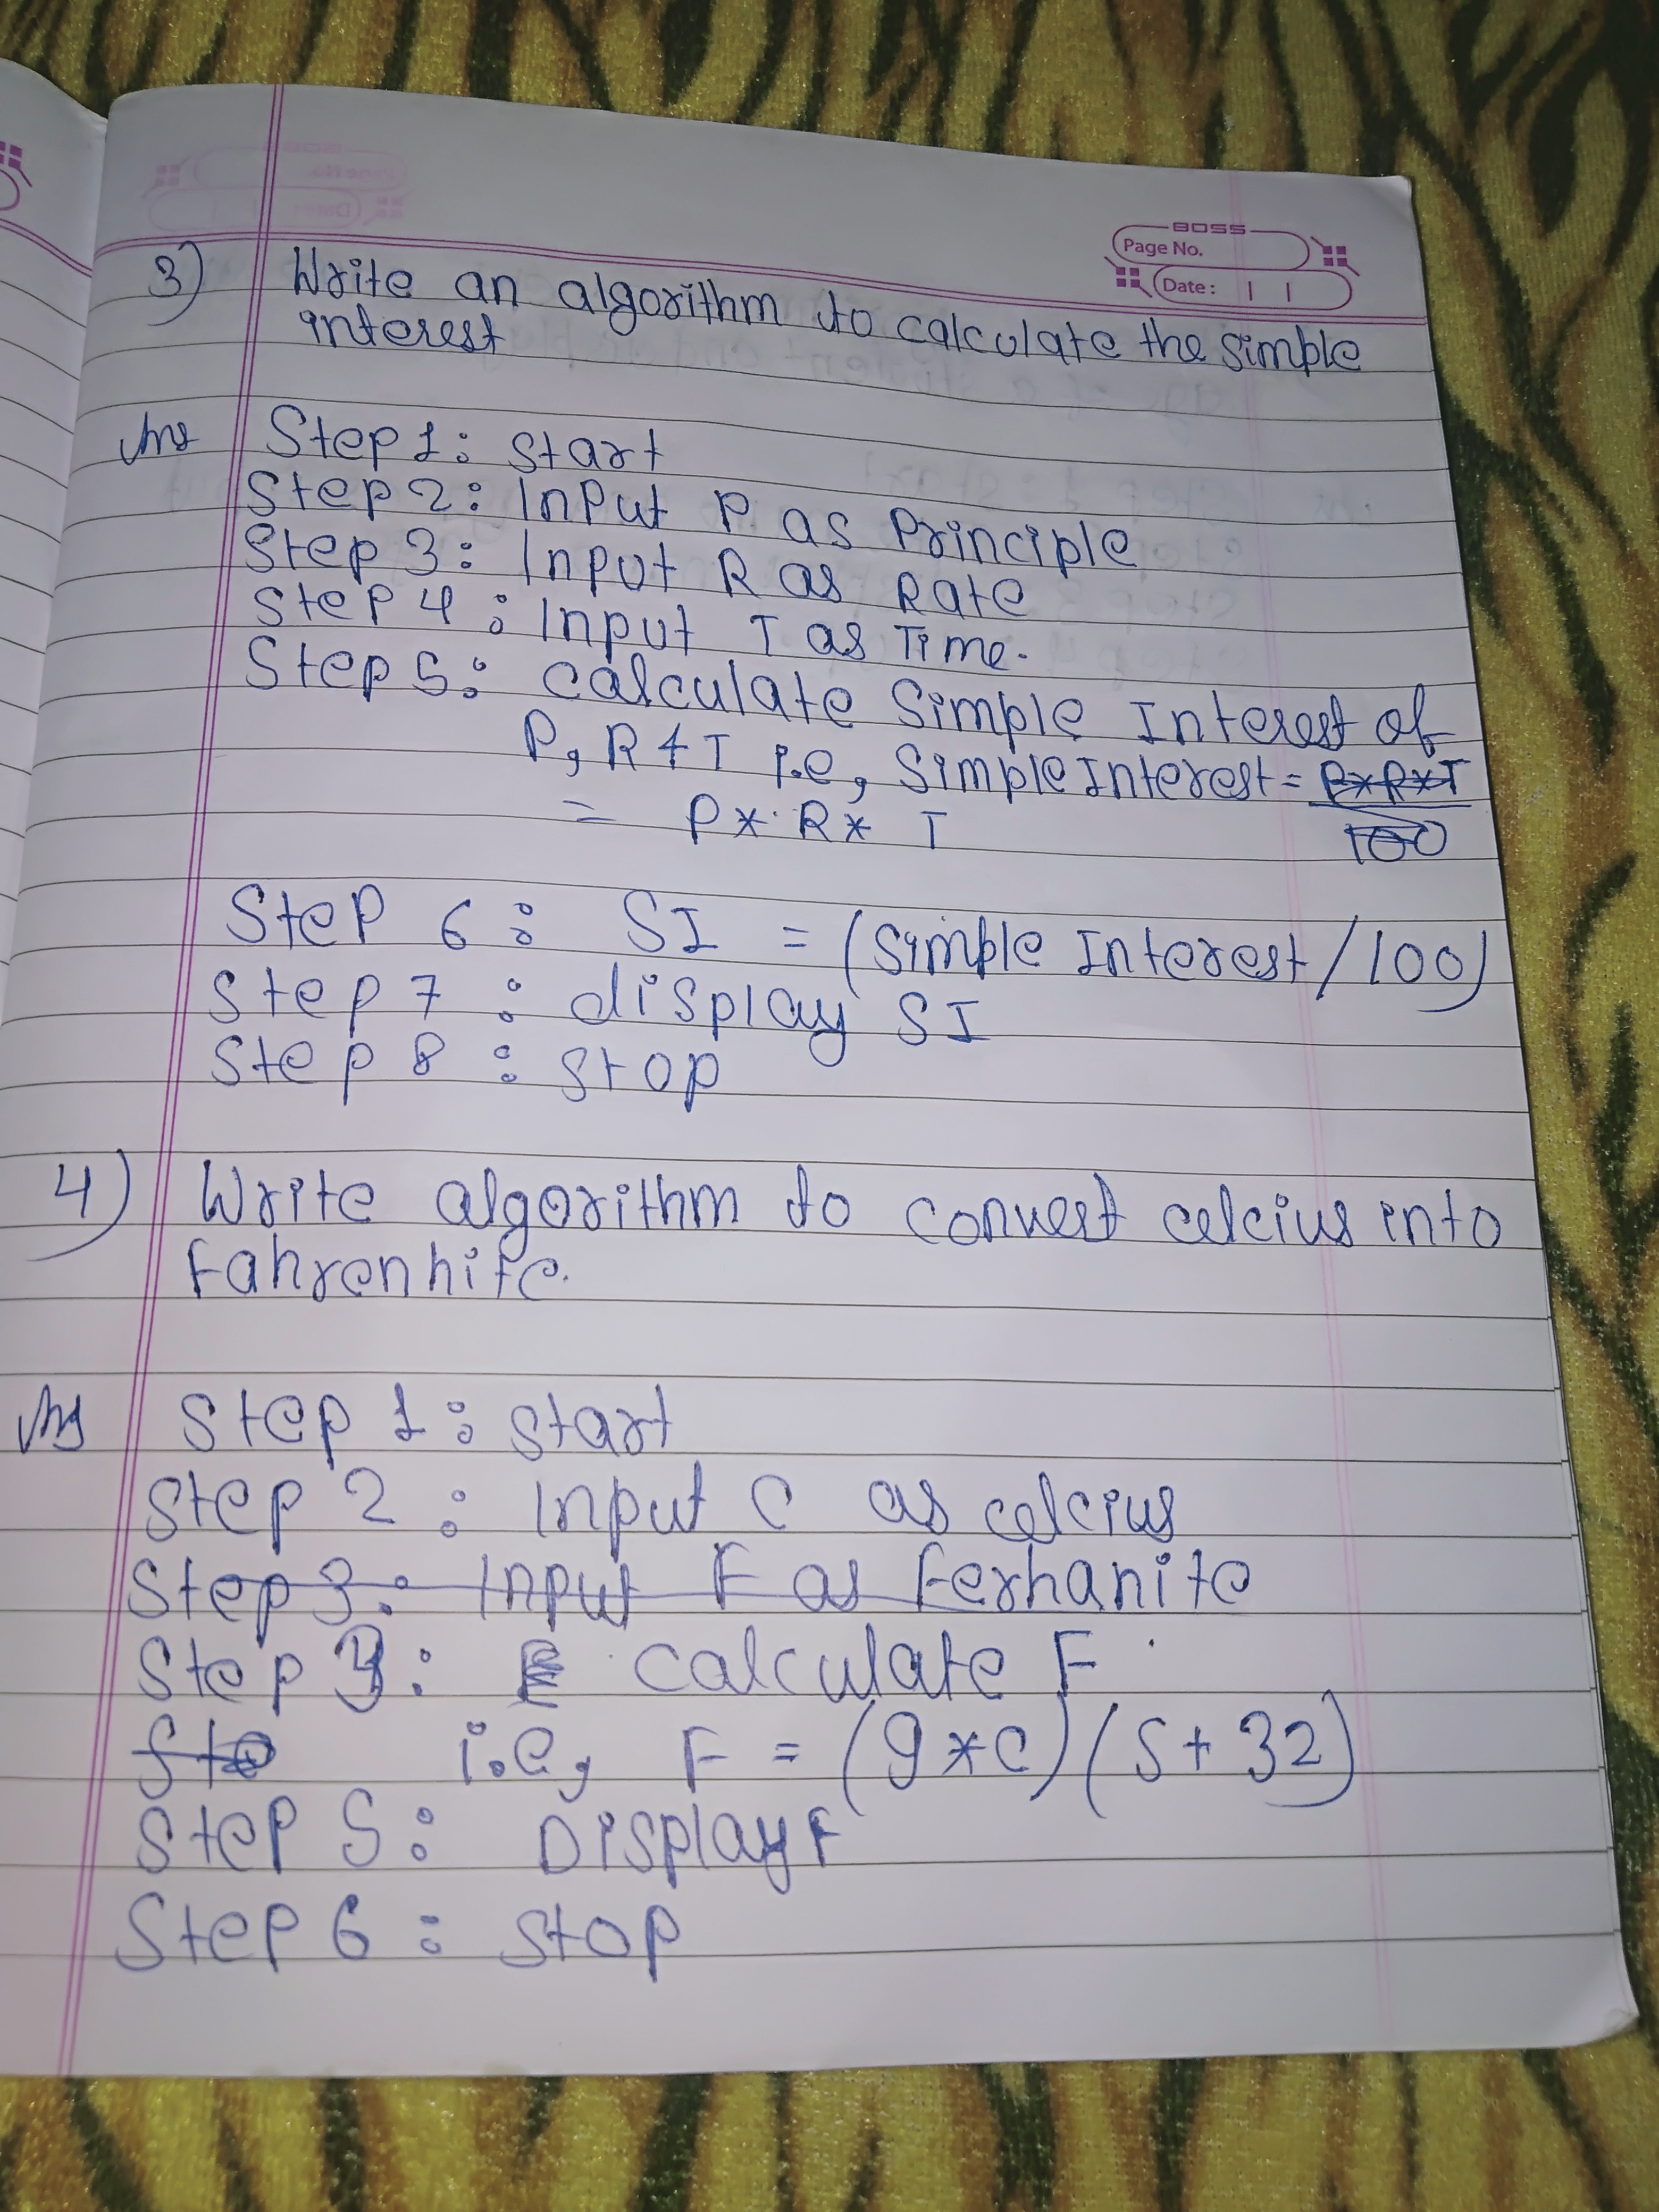 BOSS
Page No.
Date :
3) Write an algorithm to calculate the simple
interest
Ans Step 1: start
Step 2: Input P as Principle
Step 3: Input R as Rate
Step 4: Input T as Time.
Step 5: calculate Simple Interest of
P, R & T i.e, Simple Interest = P*R*T
100
= P * R * T
Step 6: SI = (simple Interest/100)
Step 7: display SI
Step 8: stop
4) Write algorithm to convert celcius into
Fahrenhite.
Ans Step 1: start
Step 2: Input C as celcius
Step 3: Input F as ferhanite
Step 3: calculate F
Ste i.e, F = (9*c)(5+32)
Step 5: Display F
Step 6: stop